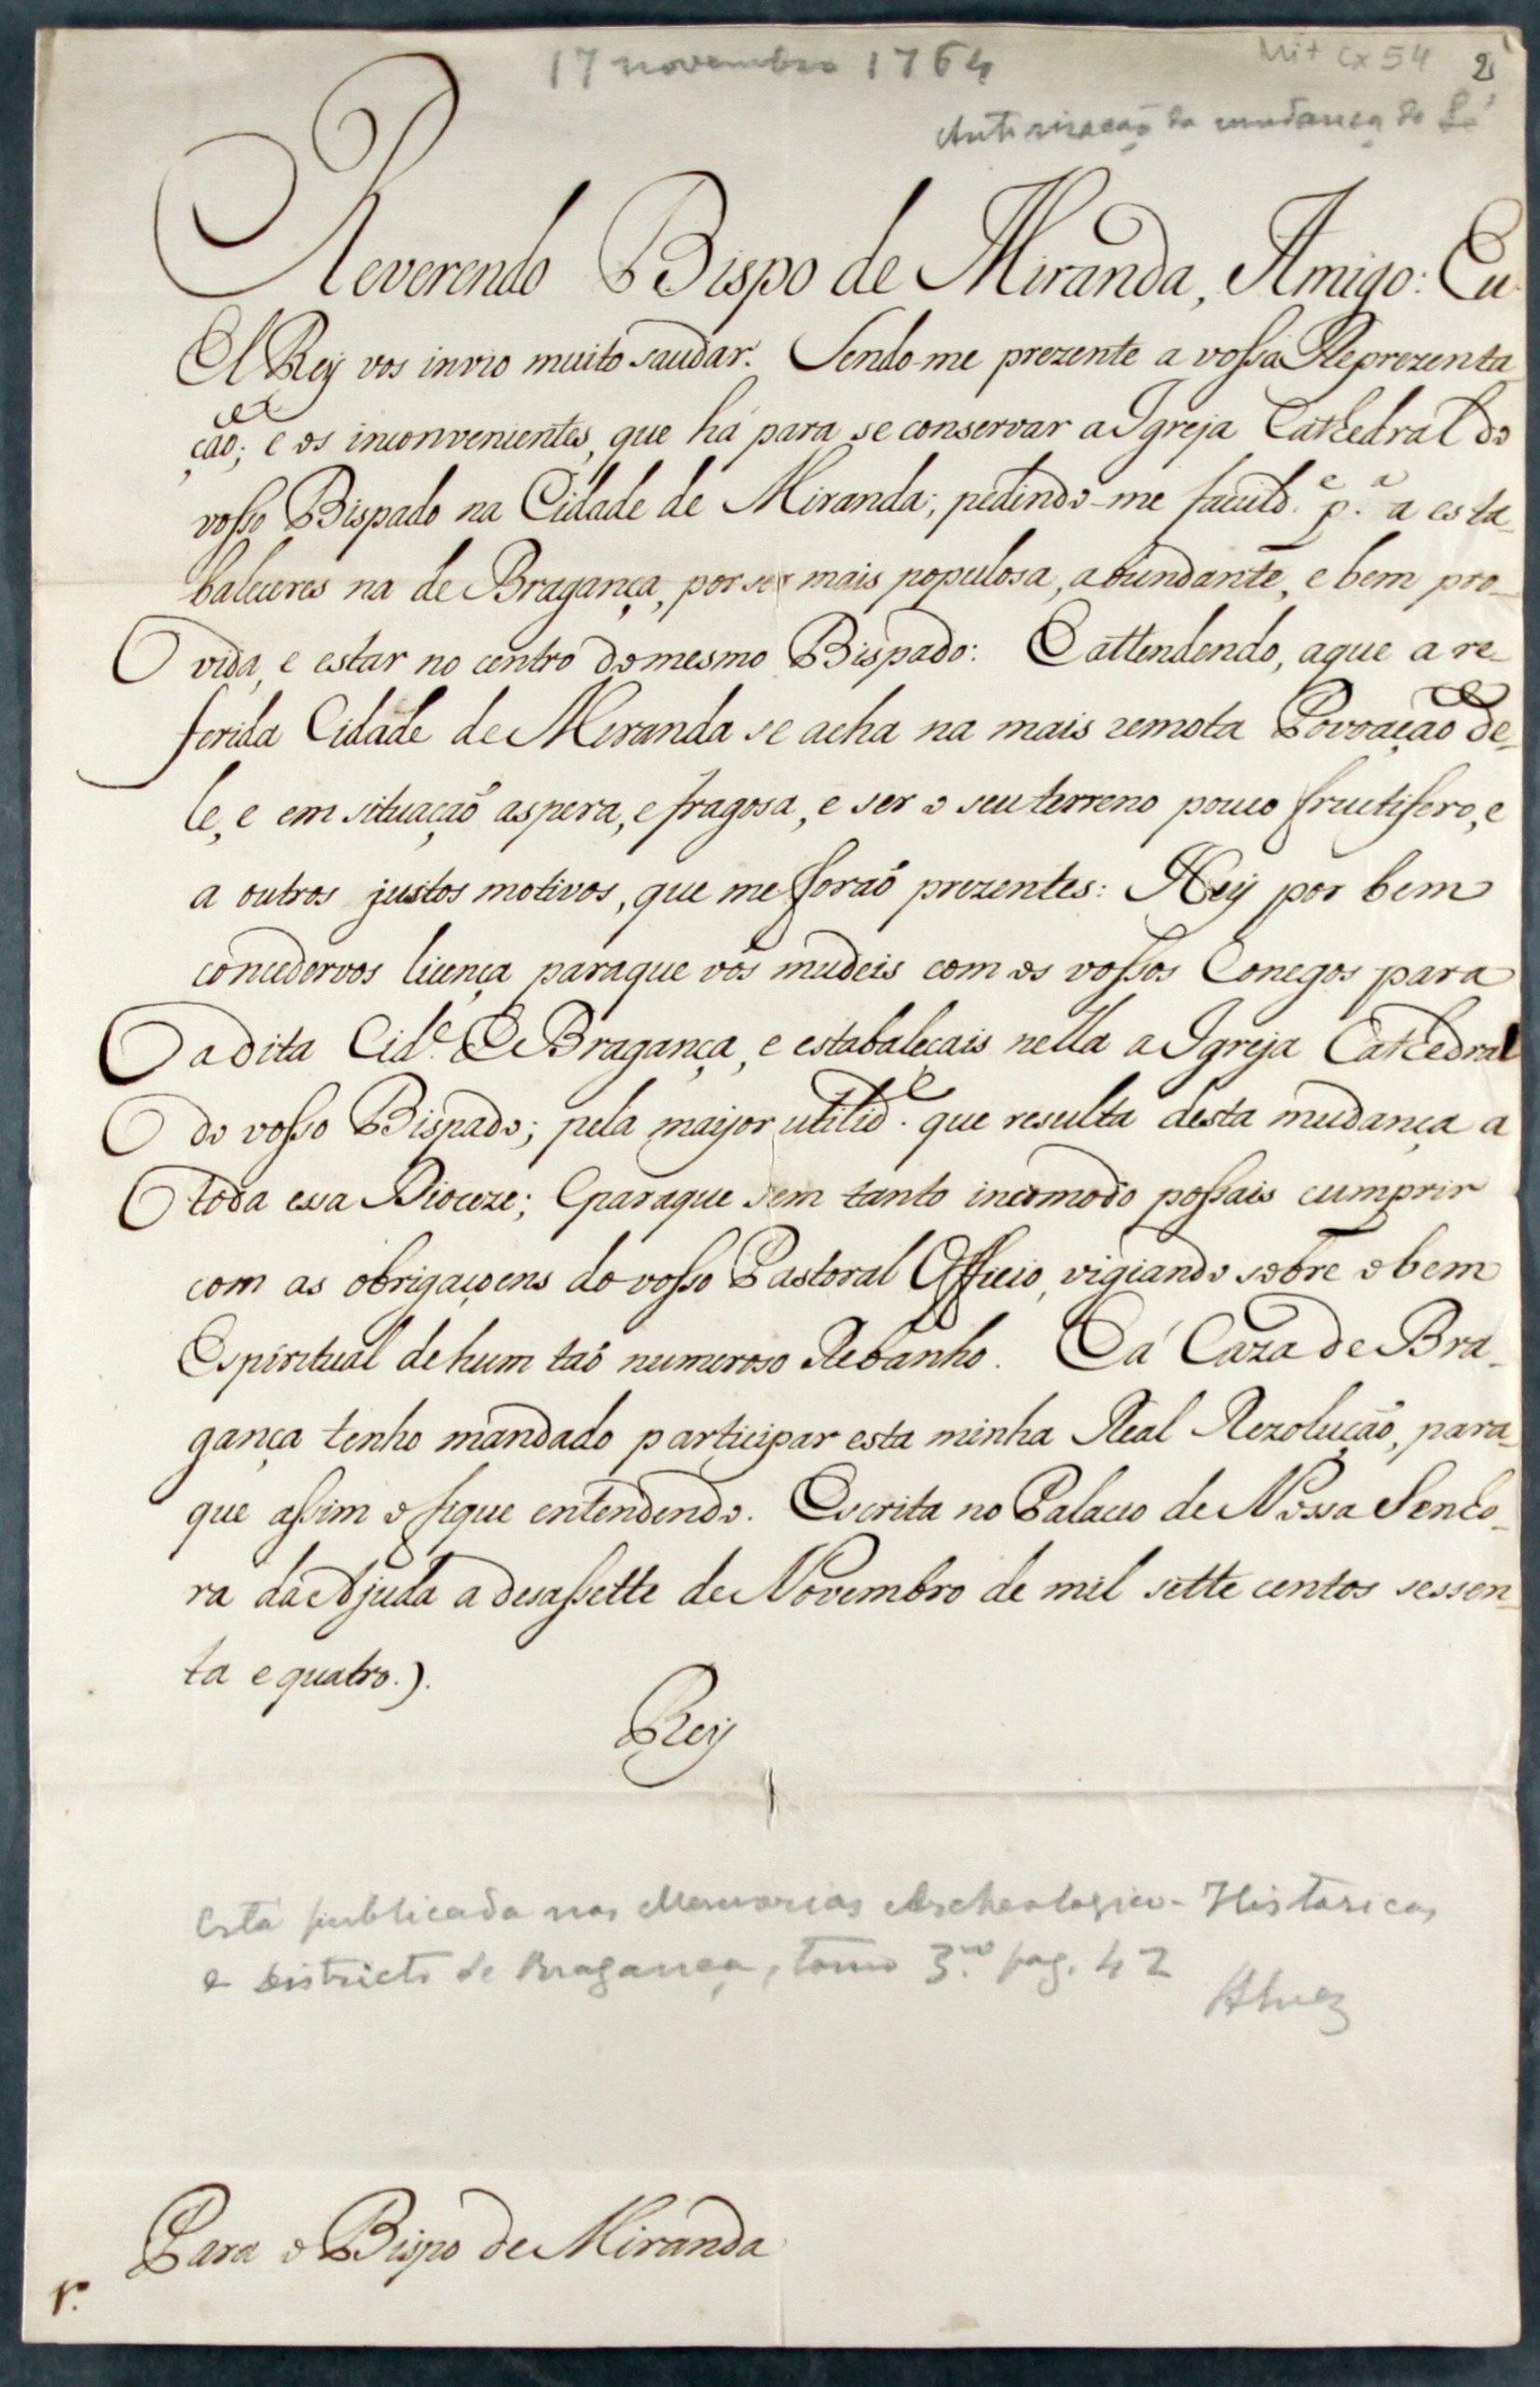 17 novembro 1764
Mit cx 54 2
Autorisação da mudança da Sé
Reverendo Bispo de Miranda, Amigo: Eu
El Rey vos invio muito saudar. Sendo-me prezente a vossa Reprezenta
ção; e os inconvenientes, que há para se conservar a Igreja Cathedral do
vosso Bispado na Cidade de Miranda; pedindo-me faculd.e p.a a esta-
baleceres na de Bragança, por ser mais populosa, abundante, e bem pro-
vida, e estar no centro do mesmo Bispado: E attendendo, aque a re-
ferida Cidade de Miranda se acha na mais remota Povoação de-
le, e em situação aspera, e fragosa, e ser o seu terreno pouco fructifero, e
a outros justos motivos, que me forão prezentes: Hey por bem
concedervos licença paraque vos mudeis com os vossos Conegos para
a dita Cid.e de Bragança, e estabaleçais nella a Igreja Cathedral
do vosso Bispado; pela maijor utilid.e que resulta desta mudança a
toda essa Dioceze; E paraque sem tanto incomodo possais cumprir
com as obrigaçoens do vosso Pastoral Officio, vigiando sobre o bem
Espiritual de hum taõ numeroso Rebanho. E á Caza de Bra-
gança tenho mandado participar esta minha Real Rezolução, para-
que assim o fique entendendo. Escrita no Palacio de Nossa Senho-
ra da Ajuda a desassette de Novembro de mil sette centos sessen-
ta e quatro.).
Rey
Está publicada nas Memorias Archeologico-Historicas
e Districto de Bragança, tomo 3.º pag. 42
Alves
Para o Bispo de Miranda